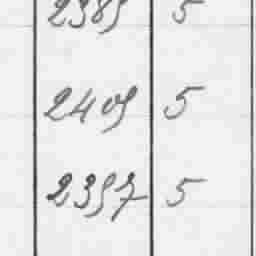 2389 5
2409 5
2397 5